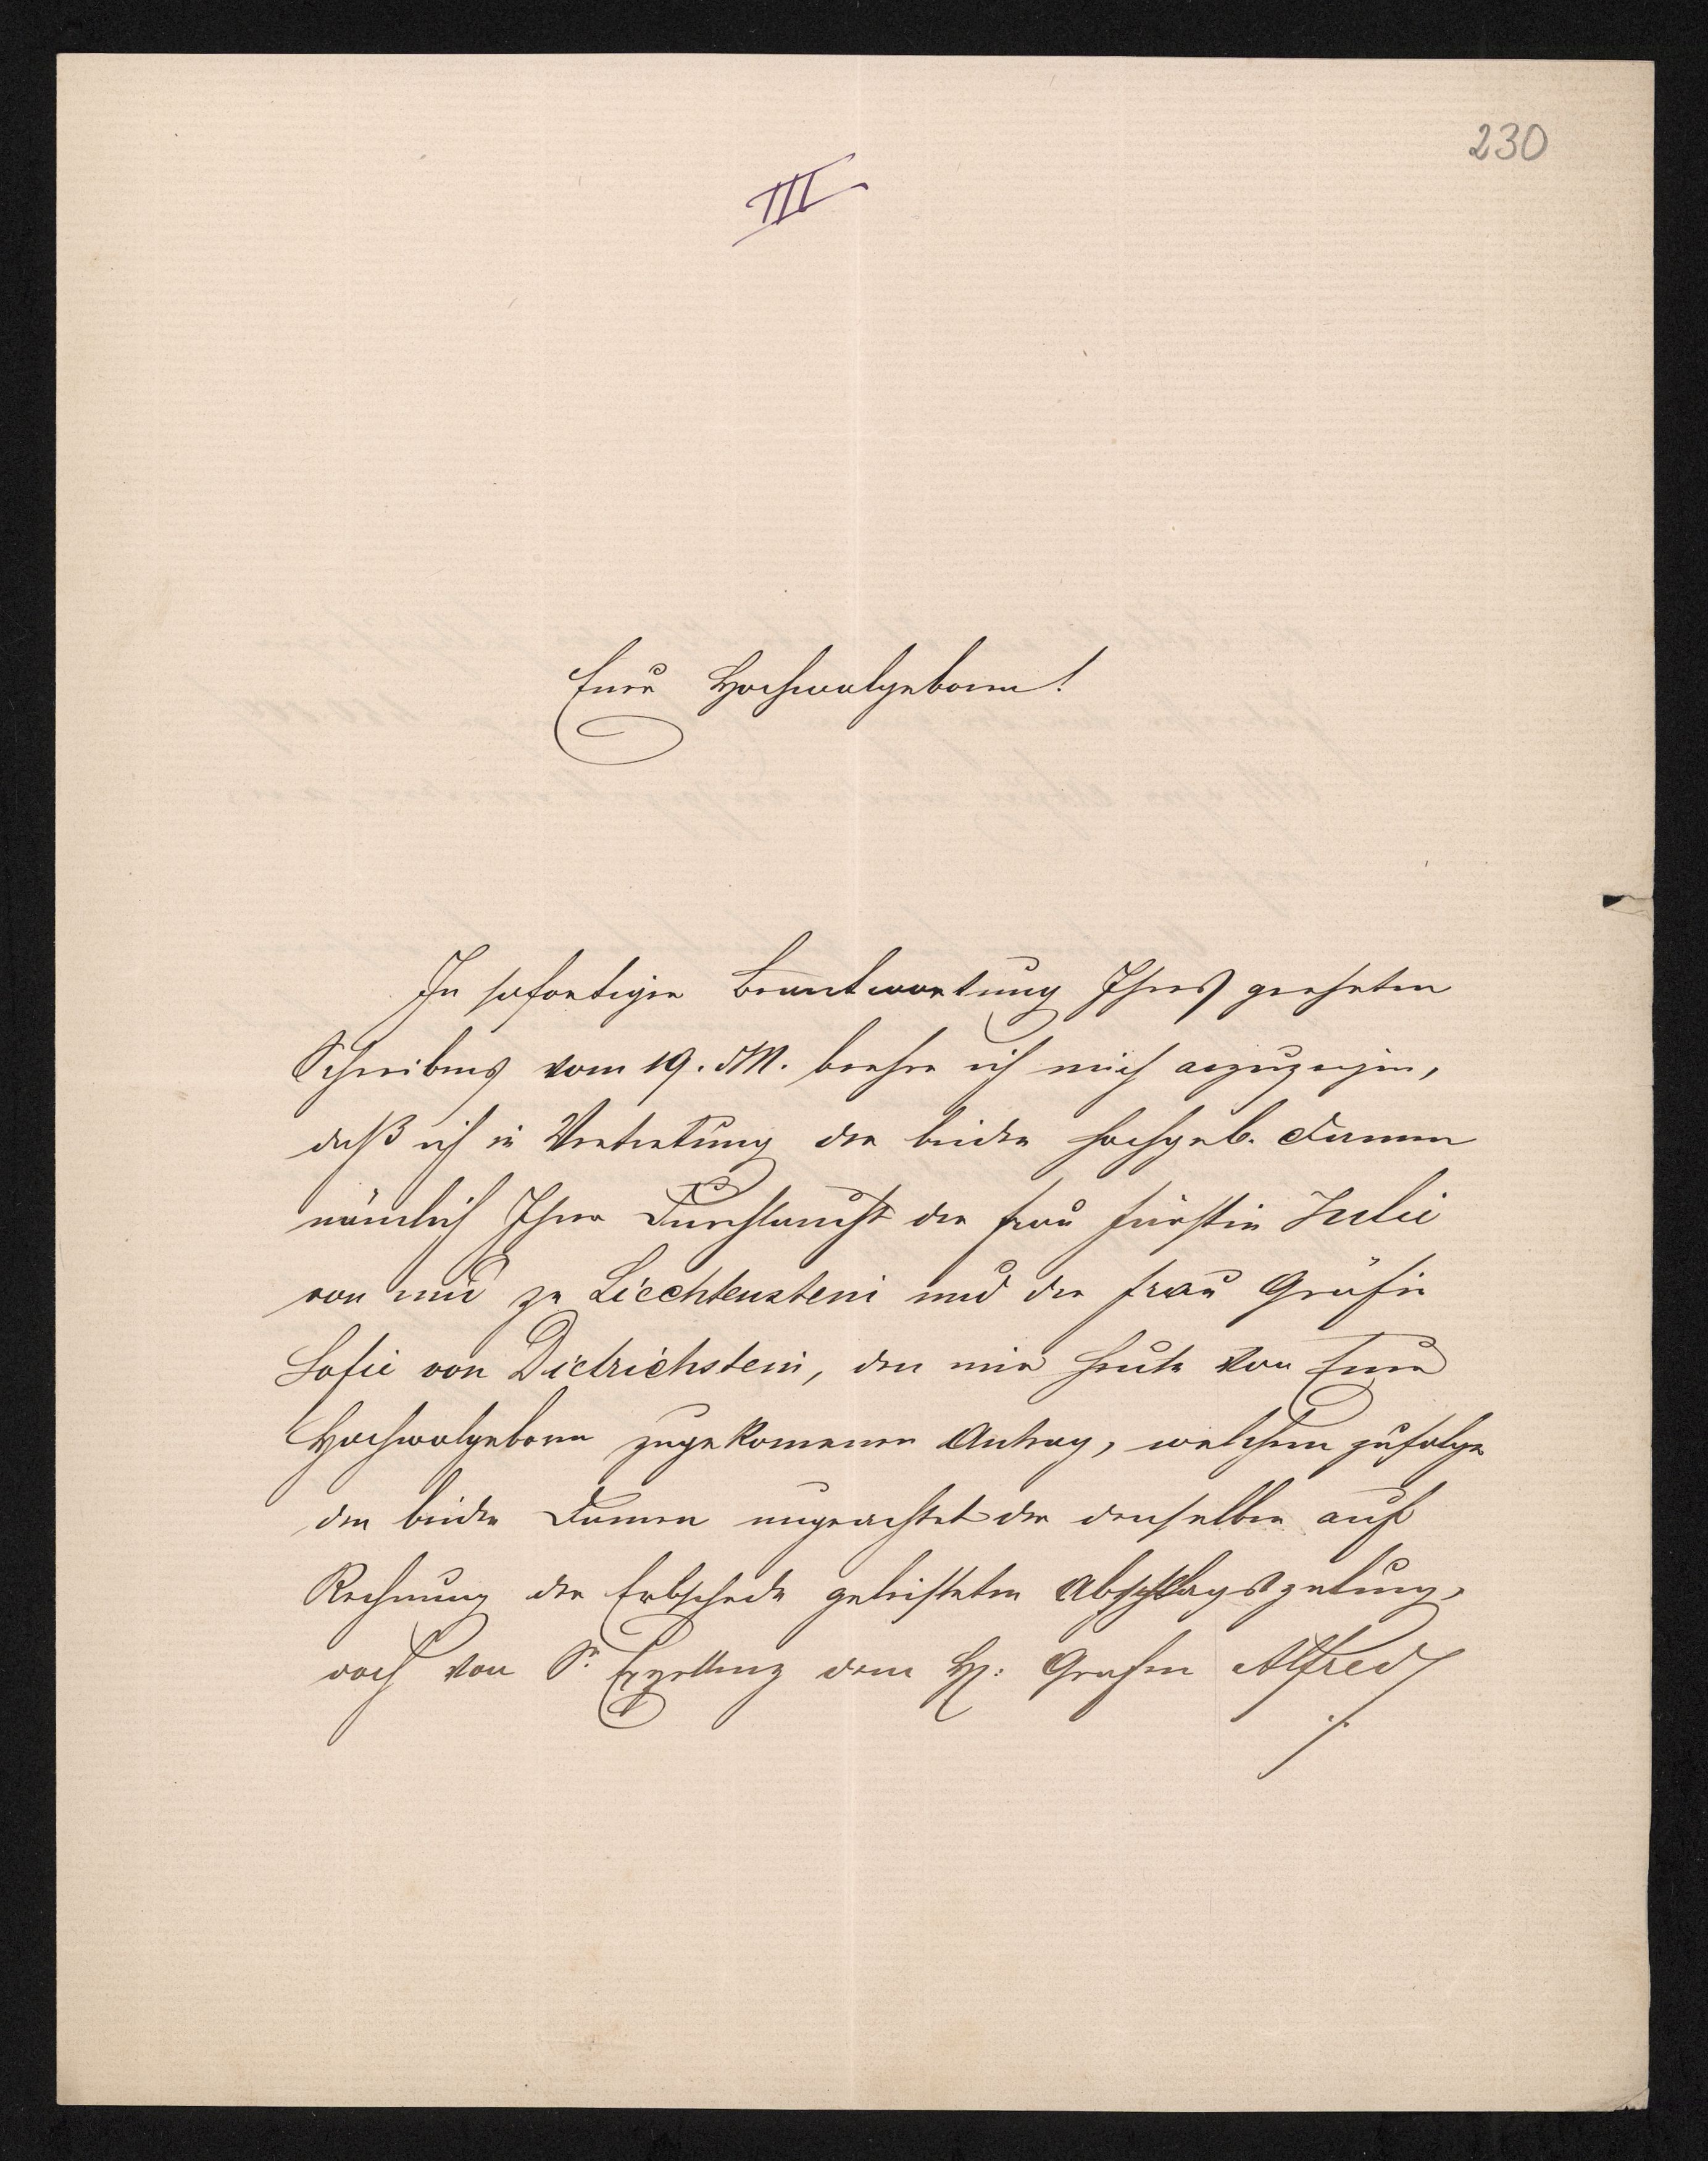 230
III
Eure Hochwolgeborn!
In sofortiger Beantwortung Ihres geehrten
Schreibens vom 19. dM. beehre ich mich anzuzeigen,
daß ich in Vertretung der beiden hochgeb. Damen
nämlich Ihrer Durchlaucht der Frau Fürstin Julie
von und zu Liechtenstein und der Frau Gräfin
Sofie von Dietrichstein, den mir heute von Euer
Hochwolgeborn zugekommenen Antrag, welchem zufolge
den beiden Damen ungeachtet der denselben auf
Rechnung der Erbschede geleisteten Abschlagszalung,
noch von Sr. Exzellenz dem H: Grafen Alfred
./.